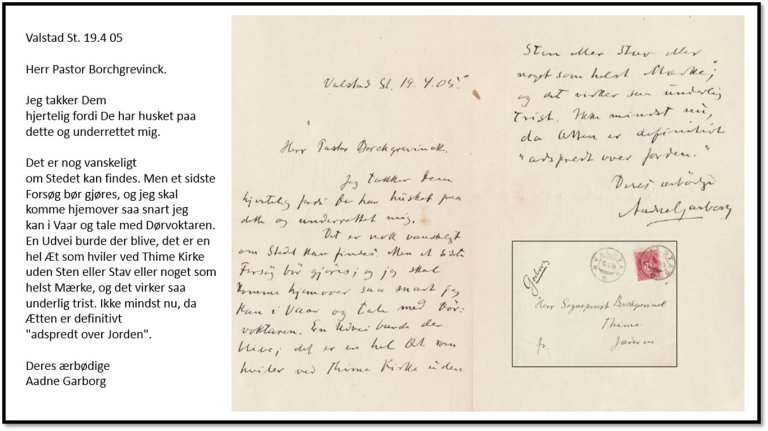 Valstad St. 19.4 05
Herr Pastor Borchgrevinck.
Jeg takker Dem
hjertelig fordi De har husket paa
dette og underrettet mig.
Det er nog vanskeligt
om Stedet kan findes. Men et sidste
Forsøg bør gjøres, og jeg skal
komme hjemover saa snart jeg
kan i Vaar og tale med Dørvoktaren.
En Udvei burde der blive, det er en
hel Æt som hviler ved Thime Kirke
uden Sten eller Stav eller noget som
helst Mærke, og det virker saa
underlig trist. Ikke mindst nu, da
Ætten er definitivt
"adspredt over Jorden".
Deres ærbødige
Aadne Garborg
Valstad St. 19.4.05.
Herr Pastor Borchgrevinck.
Jeg takker Dem
hjertelig fordi De har husket paa
dette og underrettet mig.
Det er nok vanskeligt
om Stedet kan findes. Men et sidste
Forsøg bör gjöres, og jeg skal
komme hjemover saa snart jeg
kan i Vaar og tale med Dör-
voktaren. En Udvei burde der
blive; det er en hel Æt som
hviler ved Thime Kirke uden
Sten eller Stav eller
noget som helst Mærke;
og det virker saa underlig
trist. Ikke mindst nu,
da Ætten er definitivt
"adspredt over Jorden."
Deres ærbødige
Aadne Garborg
Garborg
Herr Sogneprest Borchgrevinck
Thime
pr. Jæderen